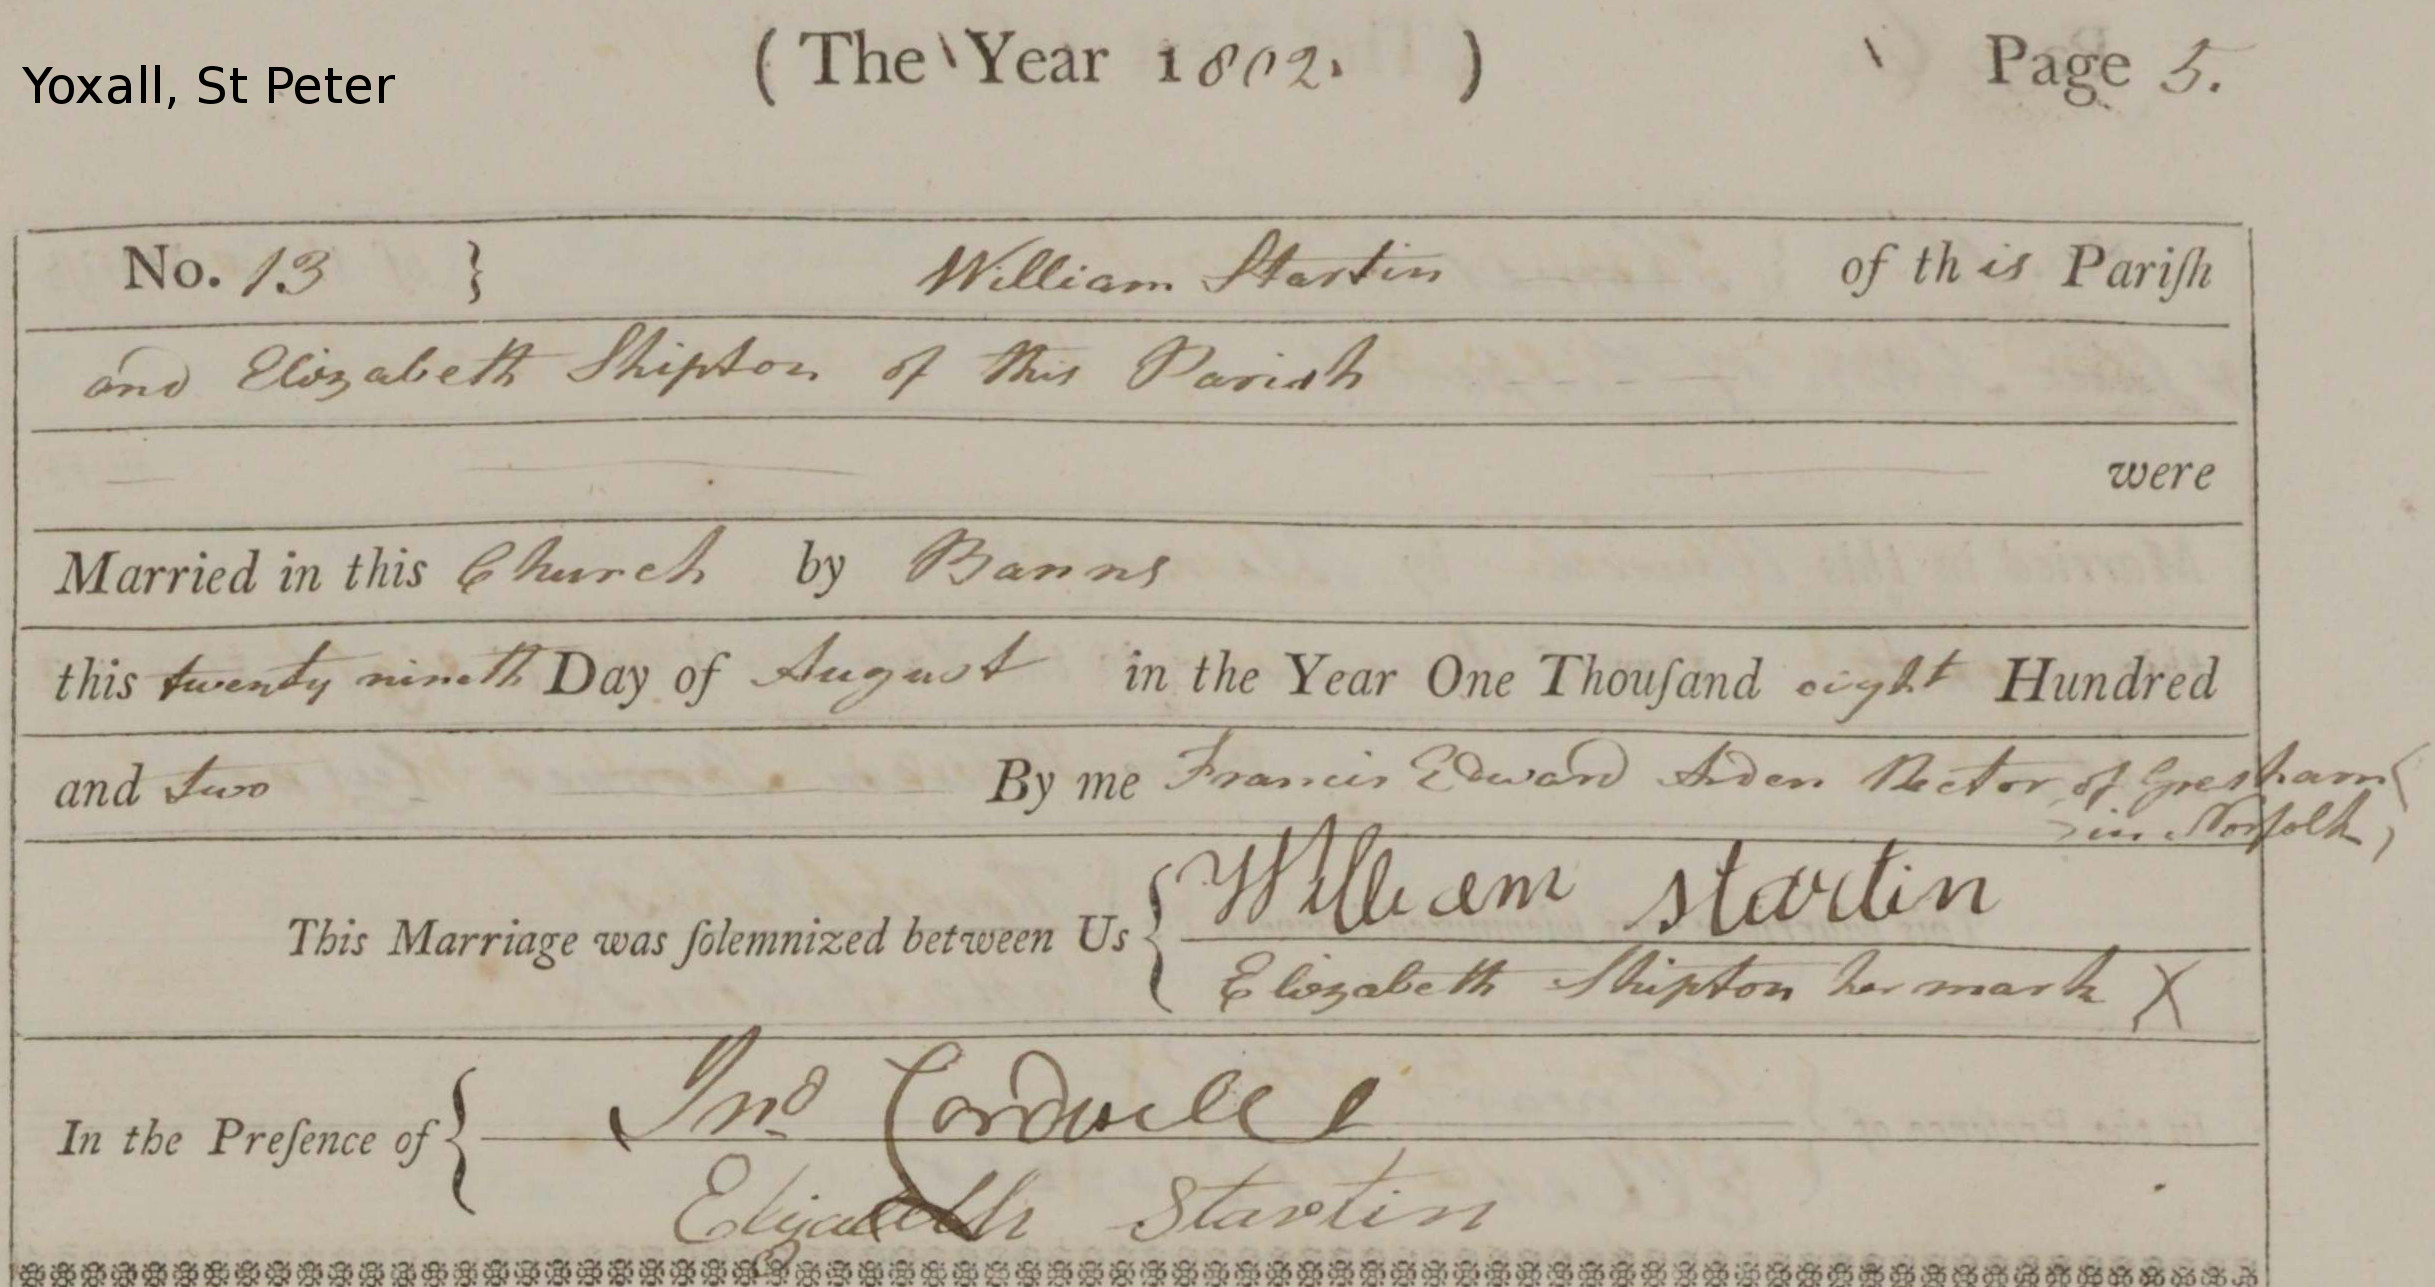 Yoxall, St Peter
( The Year 1802. )
Page 5.
No. 13 } William Startin of this Pariſh
and Elizabeth Shipton of this Parish
were
Married in this Church by Banns
this twenty nineth Day of August in the Year One Thouſand eight Hundred
and two By me Francis Edward Arden Rector of Gresham
in Norfolk
This Marriage was ſolemnized between Us { William startin
Elizabeth Shipton her mark X
In the Preſence of { Jno Cordwell
Elizabeth Startin